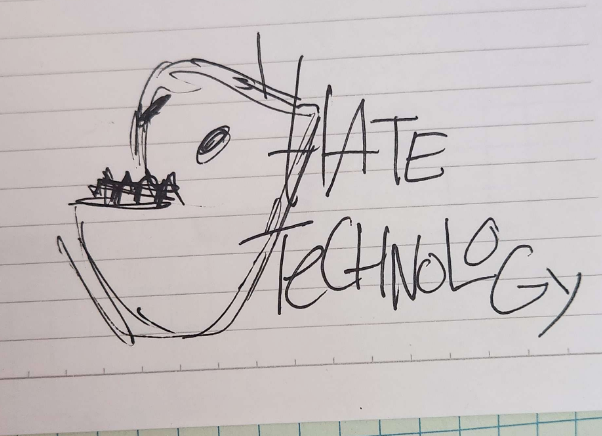 I HATE
TeCHNOLOGY